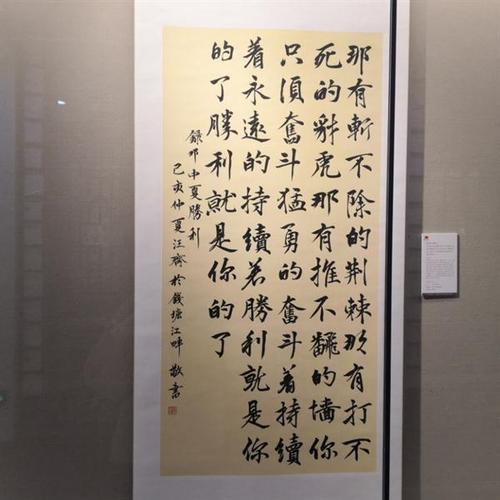 那有斬不除的荊棘那有打不
死的豺虎那有推不飜的墻你
只須奮斗猛勇的奮斗着持續
着永遠的持續着勝利就是你
的了勝利就是你的了
録邓中夏勝利
己亥仲夏汪於錢塘江畔敬書